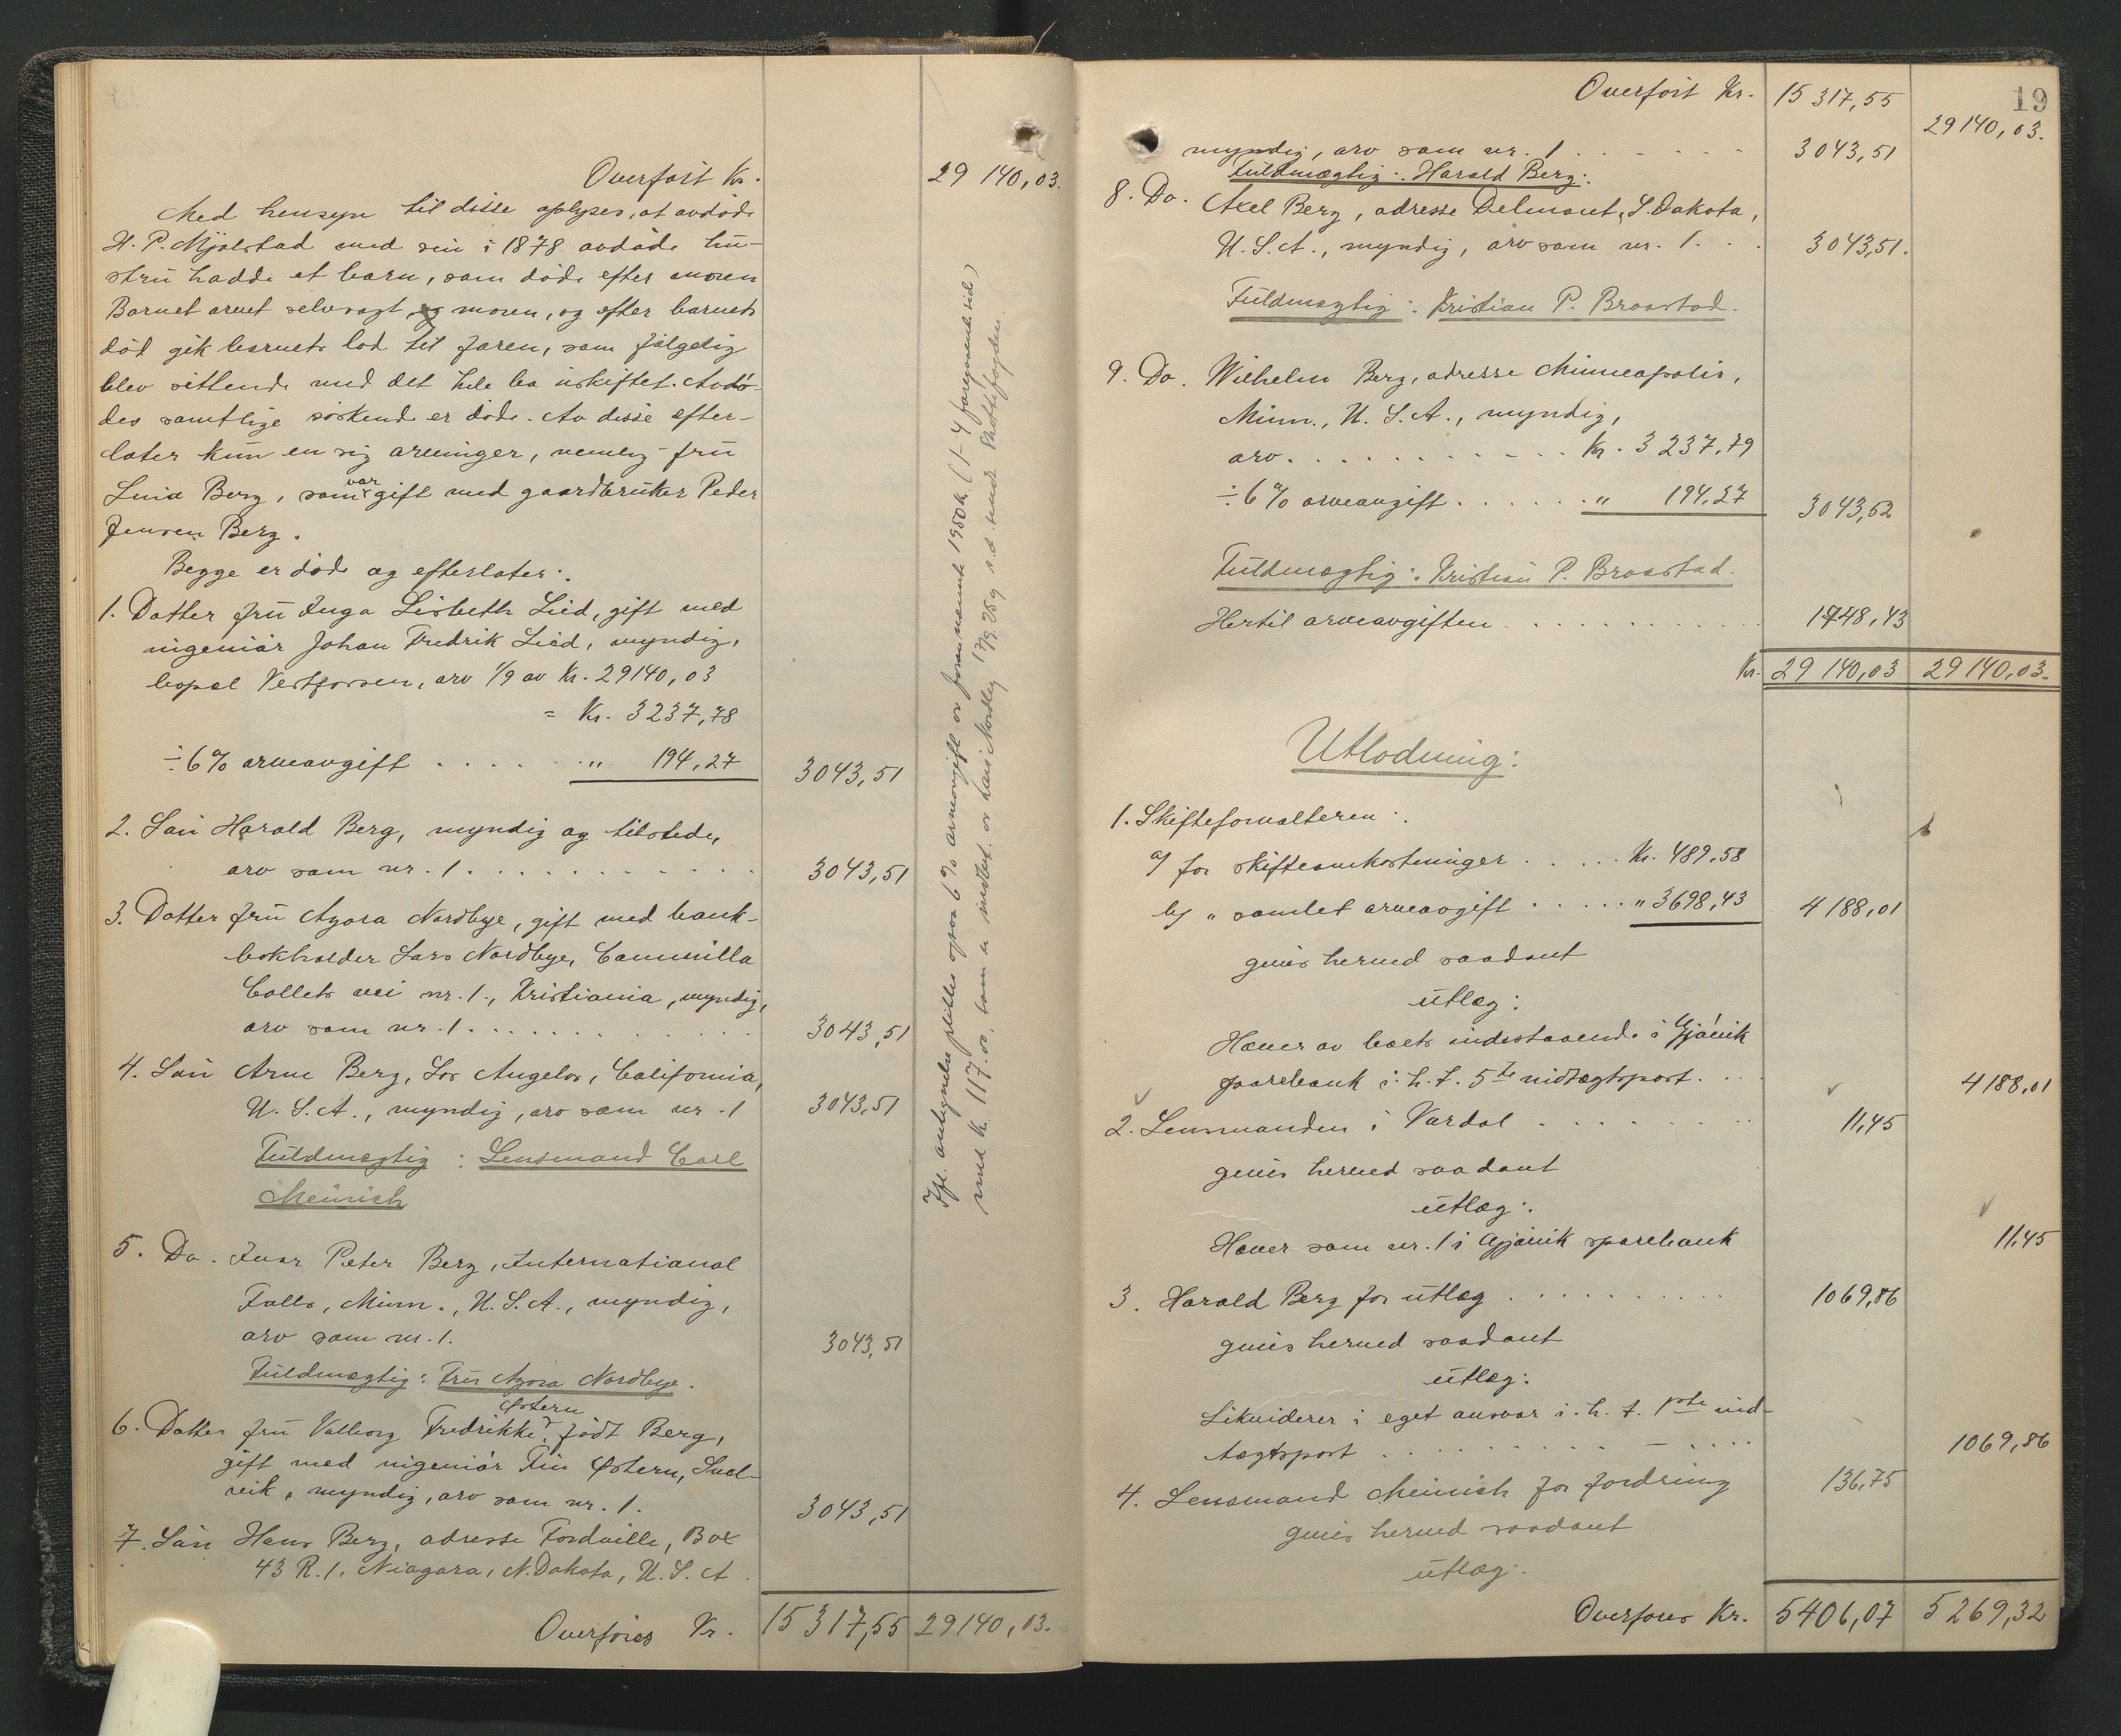 Overført Kr. 29 140,03.
Med hensyn til disse oplyses, at avdøde
H. P. Mjølstad med sin i 1878 avdøde hu-
stru hadde et barn, som døde efter moren
Barnet arvet selvsagt, og moren, og efter barnets
død gik barnets lod til faren, som følgelig
blev sittende med det hele bo uskiftet. Avdø-
des samtlige søskende er døde. Av disse efter-
later kun en sig arvinger, nemlig fru
Lina Berg, som var gift med gaardbruker Peder
Jensen Berg.
Begge er døde og efterlater:
1. Datter fru Inga Lisbeth Lied, gift med
ingeniør Johan Fredrik Lied, myndig,
bopæl Vestfossen, arv 1/9 av Kr. 29140,03
= Kr. 3237,78
÷ 6% arveavgift . . . . . . " 194,27 3043,51
2. Søn Harald Berg, myndig og tilstede,
arv som nr. 1 . . . . . . . . . . 3043,51
3. Datter fru Agora Nordbye, gift med bank-
bokholder Lars Nordbye, Cammilla
Collets vei nr. 1., Kristiania, myndig,
arv som nr. 1 . . . . . . . . . . 3043,51
4. Søn Arne Berg, Los Angelos, California,
U. S. A., myndig, arv som nr. 1 3043,51
Fuldmægtig: Lensmand Carl
Meinich
5. Do. Ivar Peter Berg, International
Falls, Minn., U. S. A., myndig,
arv som nr. 1. 3043,51
Fuldmægtig: Fru Agora Nordbye.
6. Datter fru Valborg Fredrikke Østern, født Berg,
gift med ingeniør Fin Østern, Svel-
vik, myndig, arv som nr. 1. 3043,51
7. Søn Hans Berg, adresse Fordville, Box
43 R. 1. Niagara, N. Dakota, U. S. A.
Overføres Kr. 15 317,55 29140,03.
Ifl. antegnelse pliktes ogsaa 6% arveavgift av forannævnte 1950 kr. (1-4 foregaaende side)
med kr. 117.00, som er indbet. av Lars Nordbye 17/9 25 s.d. Skattefogden.
19
Overført Kr. 15 317,55 29140,03.
myndig, arv som nr. 1 . . . . . . 3043,51
Fuldmægtig: Harald Berg:
8. Do. Axel Berg, adresse Delmont, S. Dakota,
U. S. A., myndig, arv som nr. 1. . . 3043,51.
Fuldmægtig: Kristian P. Braastad.
9. Do. Wilhelm Berg, adresse Minneapolis,
Minn., U. S. A., myndig,
arv . . . . . . . . . . Kr. 3 237,79
÷ 6% arveavgift . . . . . . " 194,27 3043,52
Fuldmægtig: Kristian P. Braastad.
Hertil arveavgiften . . . . . . . . . 1748,43
Kr. 29 140,03 29140,03.
Utlodning:
1. Skifteforvalteren:
a/ for skifteomkostninger . . . . . Kr. 489,58
b/ " samlet arveavgift . . . . . " 3698,43 4188,01
gives herved saadant
utlæg:
Hæver av boets indestaaende i Gjøvik
sparebank i. h. t. 5te indtægtspost. . . 4188,01
2. Lensmanden i Vardal . . . . . . . . 11,45
gives herved saadant
utlæg:
Hæver som nr. 1 i Gjøvik sparebank 11,45
3. Harald Berg for utlæg . . . . . . . . 1069,86
gives herved saadant
utlæg:
Likviderer i eget ansvar i. h. t. 1ste ind-
tægtspost . . . . . . . . . . . 1069,86
4. Lensmand Meinich for fordring 136,75
gives herved saadant
utlæg:
Overføres Kr. 5406,07 5269,32